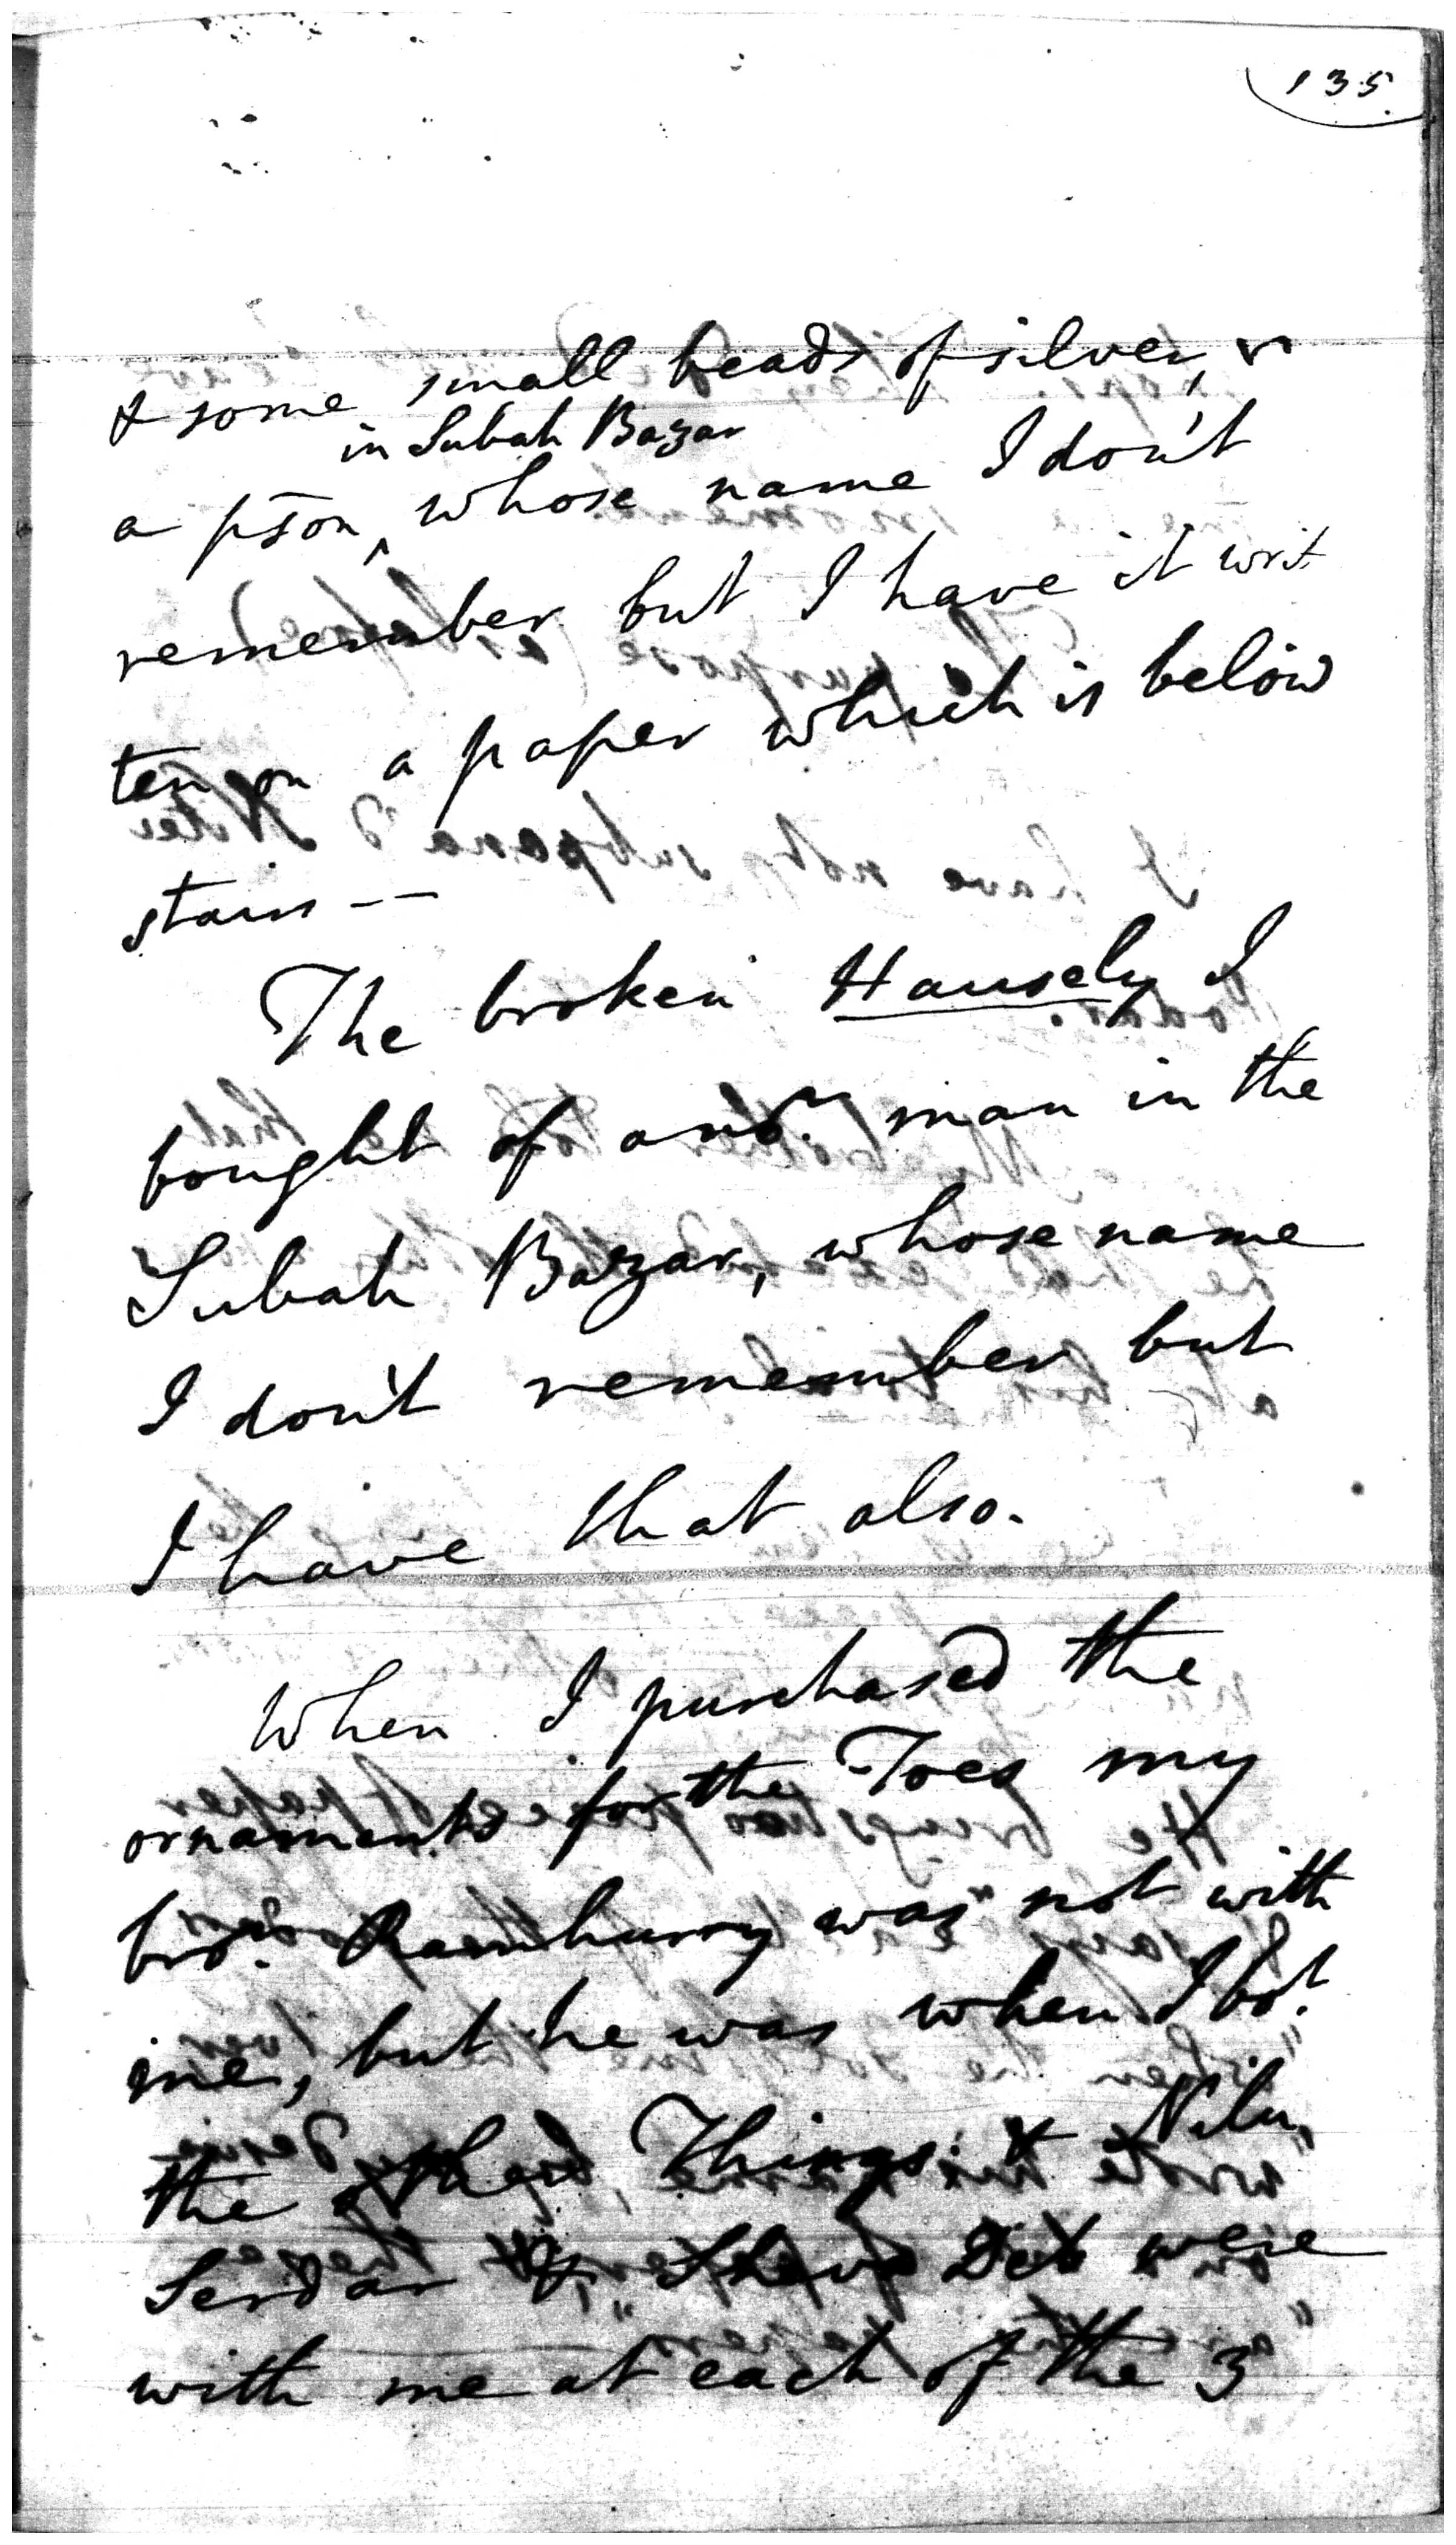 135
& some small beads of silver, &
in Subah Bazar
a pson ^ whose name I don't
remember but I have it writ
ten on a paper which is below
stairs --
The broken Hausely I
bought of anor. man in the
Subah Bazar, whose name
I don't remember but
I have that also.
When I purchased the
ornaments for the Toes my
bror. Ramhurry was not with
me, but he was when I bot.
the other Things. & Nilu
Serdar & Deb were
with me at each of the 3